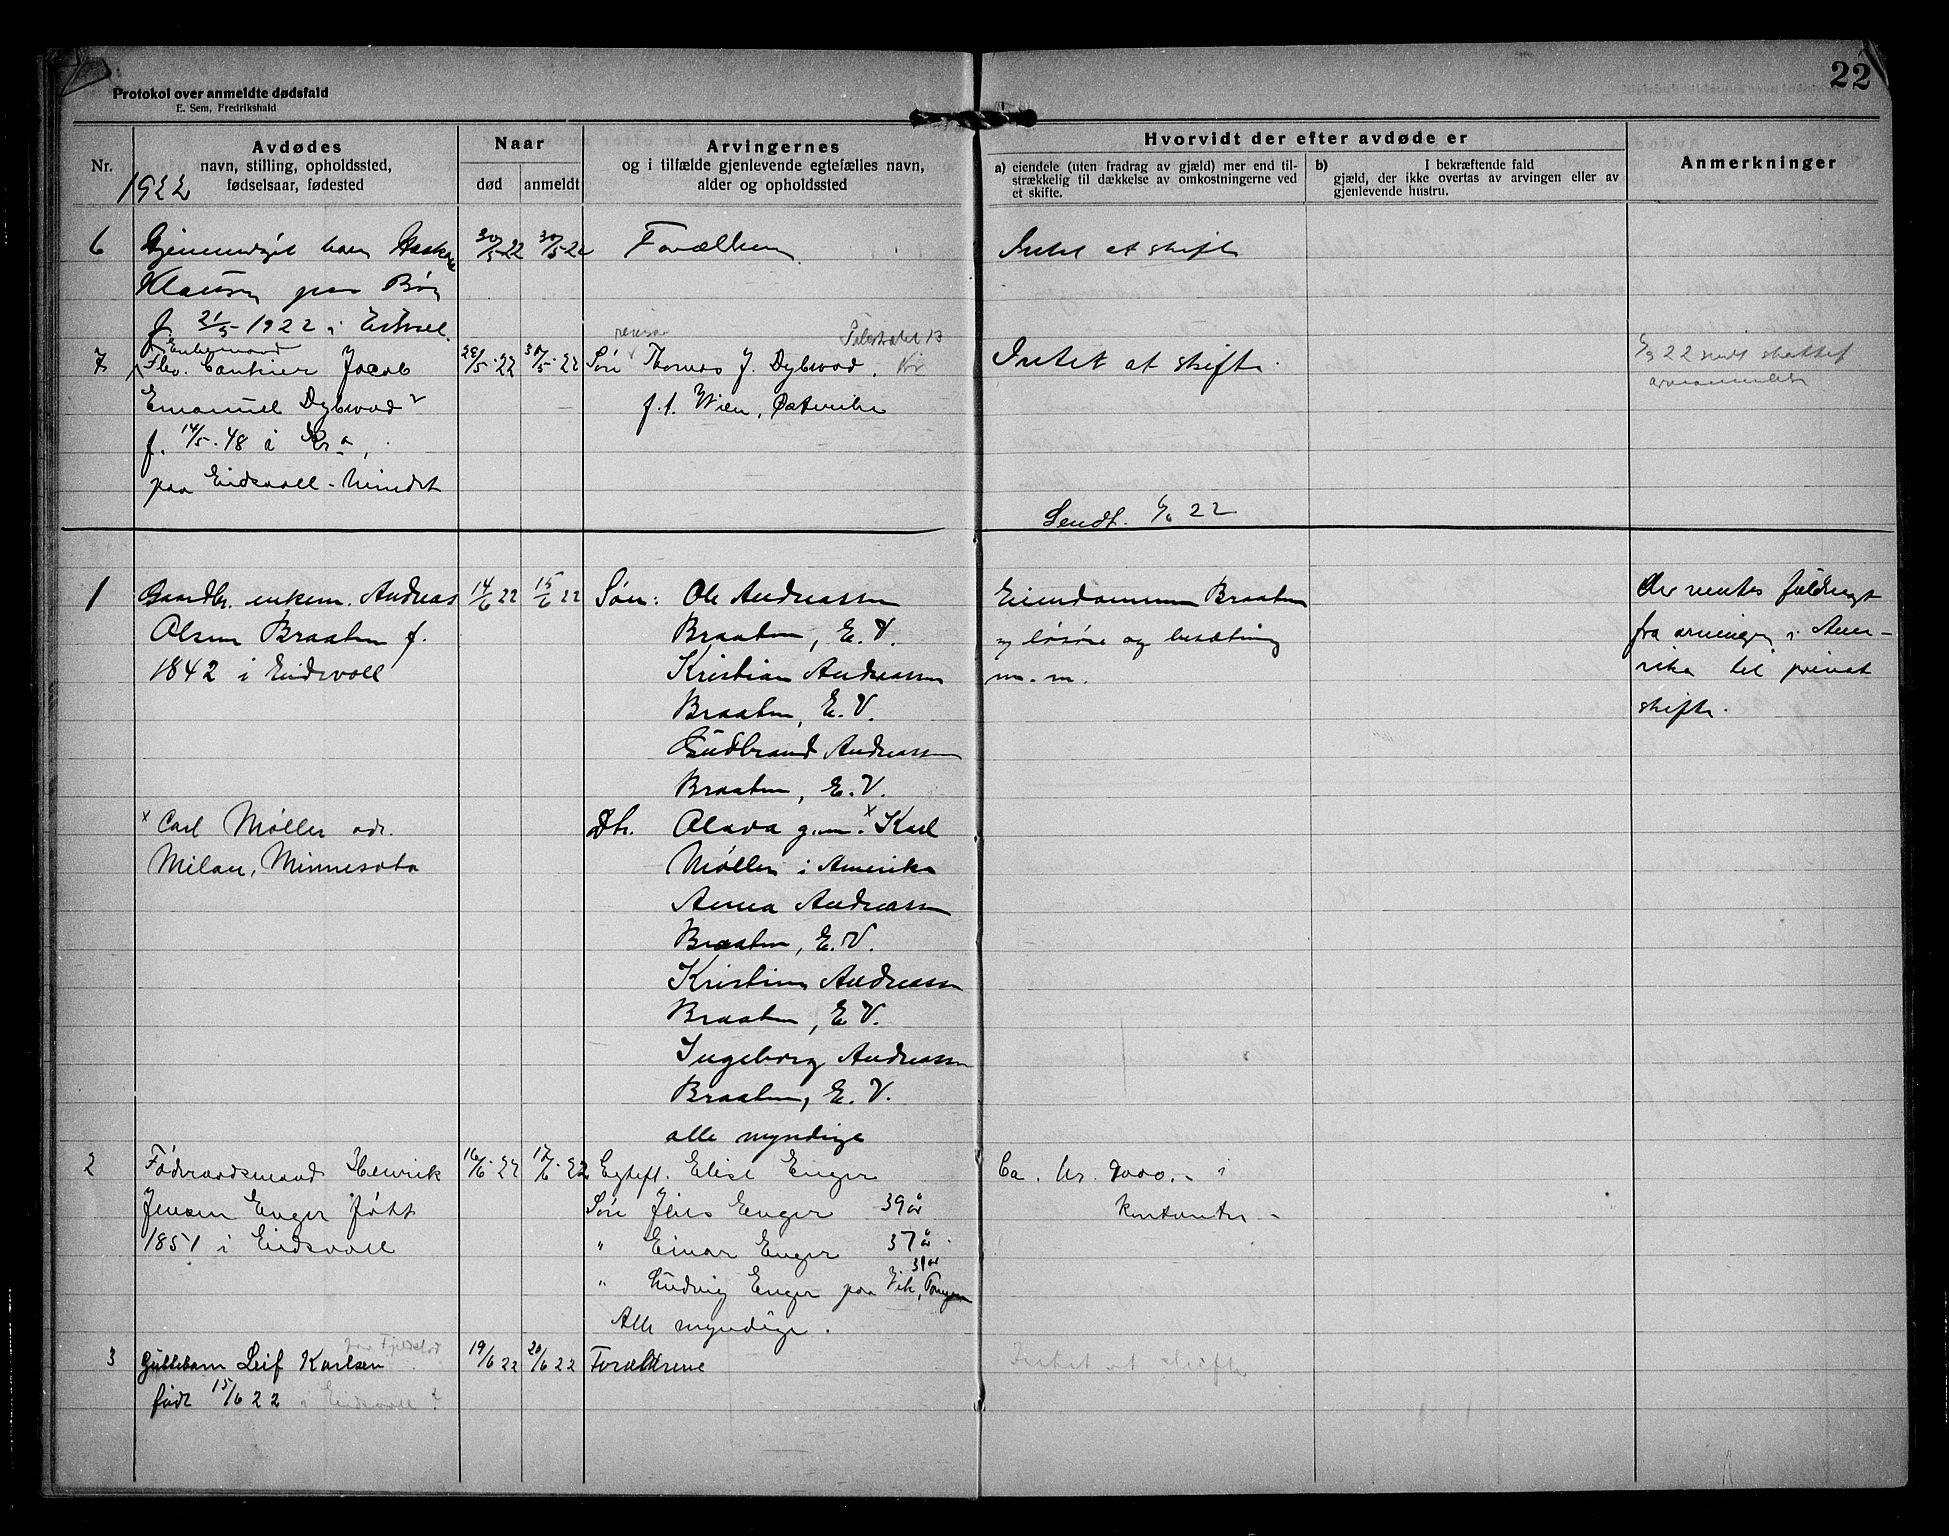 22
Protokol over anmeldte dødsfald
E. Sem, Fredrikshald
Nr.
Avdødes
navn, stilling, opholdssted,
fødselsaar, fødested
1922
Naar
død
anmeldt
Arvingernes
og i tilfælde gjenlevende egtefælles navn,
alder og opholdssted
Hvorvidt der efter avdøde er
a) eiendele (uten fradrag av gjæld) mer end til-
strækkelig til dækkelse av omkostningerne ved
et skifte.
b) I bekræftende fald
gjæld, der ikke overtas av arvingen eller av
gjenlevende hustru.
Anmerkninger
6
Klausen paa
f. 21/5-1922 i
30/5-22
30/5-22
Intet at skifte
7
Enkemand
Jacob
Emanuel Dybwad
f. 14/5.48 i Kr.a,
paa Eidsvoll-
28/5.22
30/5.22
Søn Thomas J. Dybwad,
f.t. Wien, Østerrike
Intet at skifte.
22 sendt
Sendt. 6/6 22
1
Gaardbr. enkem. Andreas
Olsen Braaten f.
1842 i Eidsvoll
14/6 22
15/6 22
Søn: Ole Andreassen
Braaten, E. V.
Kristian Andreassen
Braaten, E. V.
Gudbrand Andreassen
Braaten, E. V.
Eiendommen Braaten
og løsøre og besætning
m. m.
Der ventes fuldmagt
fra arvingen i Ame-
rika til privat
skifte.
x Carl Møller adr.
Milan, Minnesota
Dtr. Olava g.m. x Karl
Møller i Amerika
Anna Andreassen
Braaten, E. V.
Kristine Andreassen
Braaten, E V.
Ingeborg Andreassen
Braaten, E. V.
alle myndige
2
Føderaadsmand Henrik
Jensen Enger født
1851 i Eidsvoll
16/6.22
17/6.22
Egtef. Elise Enger
Søn Jens Enger 39 år
" Einar Enger 37 år
" Ludvig Enger paa Vik,
31 år
Alle myndige.
Ca. kr. 9000.- i
kontanter -
3
Guttebarn Leif Karlsen
født 15/6 22 i Eidsvoll
19/6 22
20/6 22
Forældrene
Intet at skifte